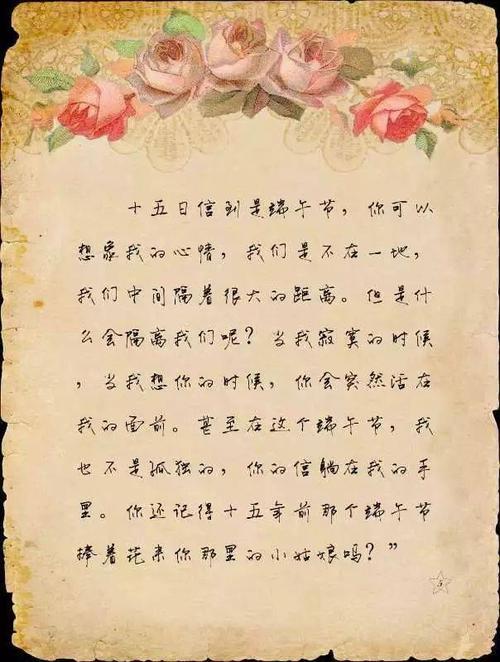 十五日信到是端午节，你可以
想象我的心情，我们是不在一地，
我们中间隔着很大的距离。但是什
么会隔离我们呢？当我寂寞的时候
，当我想你的时候，你会突然活在
我的面前。甚至在这个端午节，我
也不是孤独的，你的信躺在我的手
里。你还记得十五年前那个端午节
捧着花来你那里的小姑娘吗？”
5